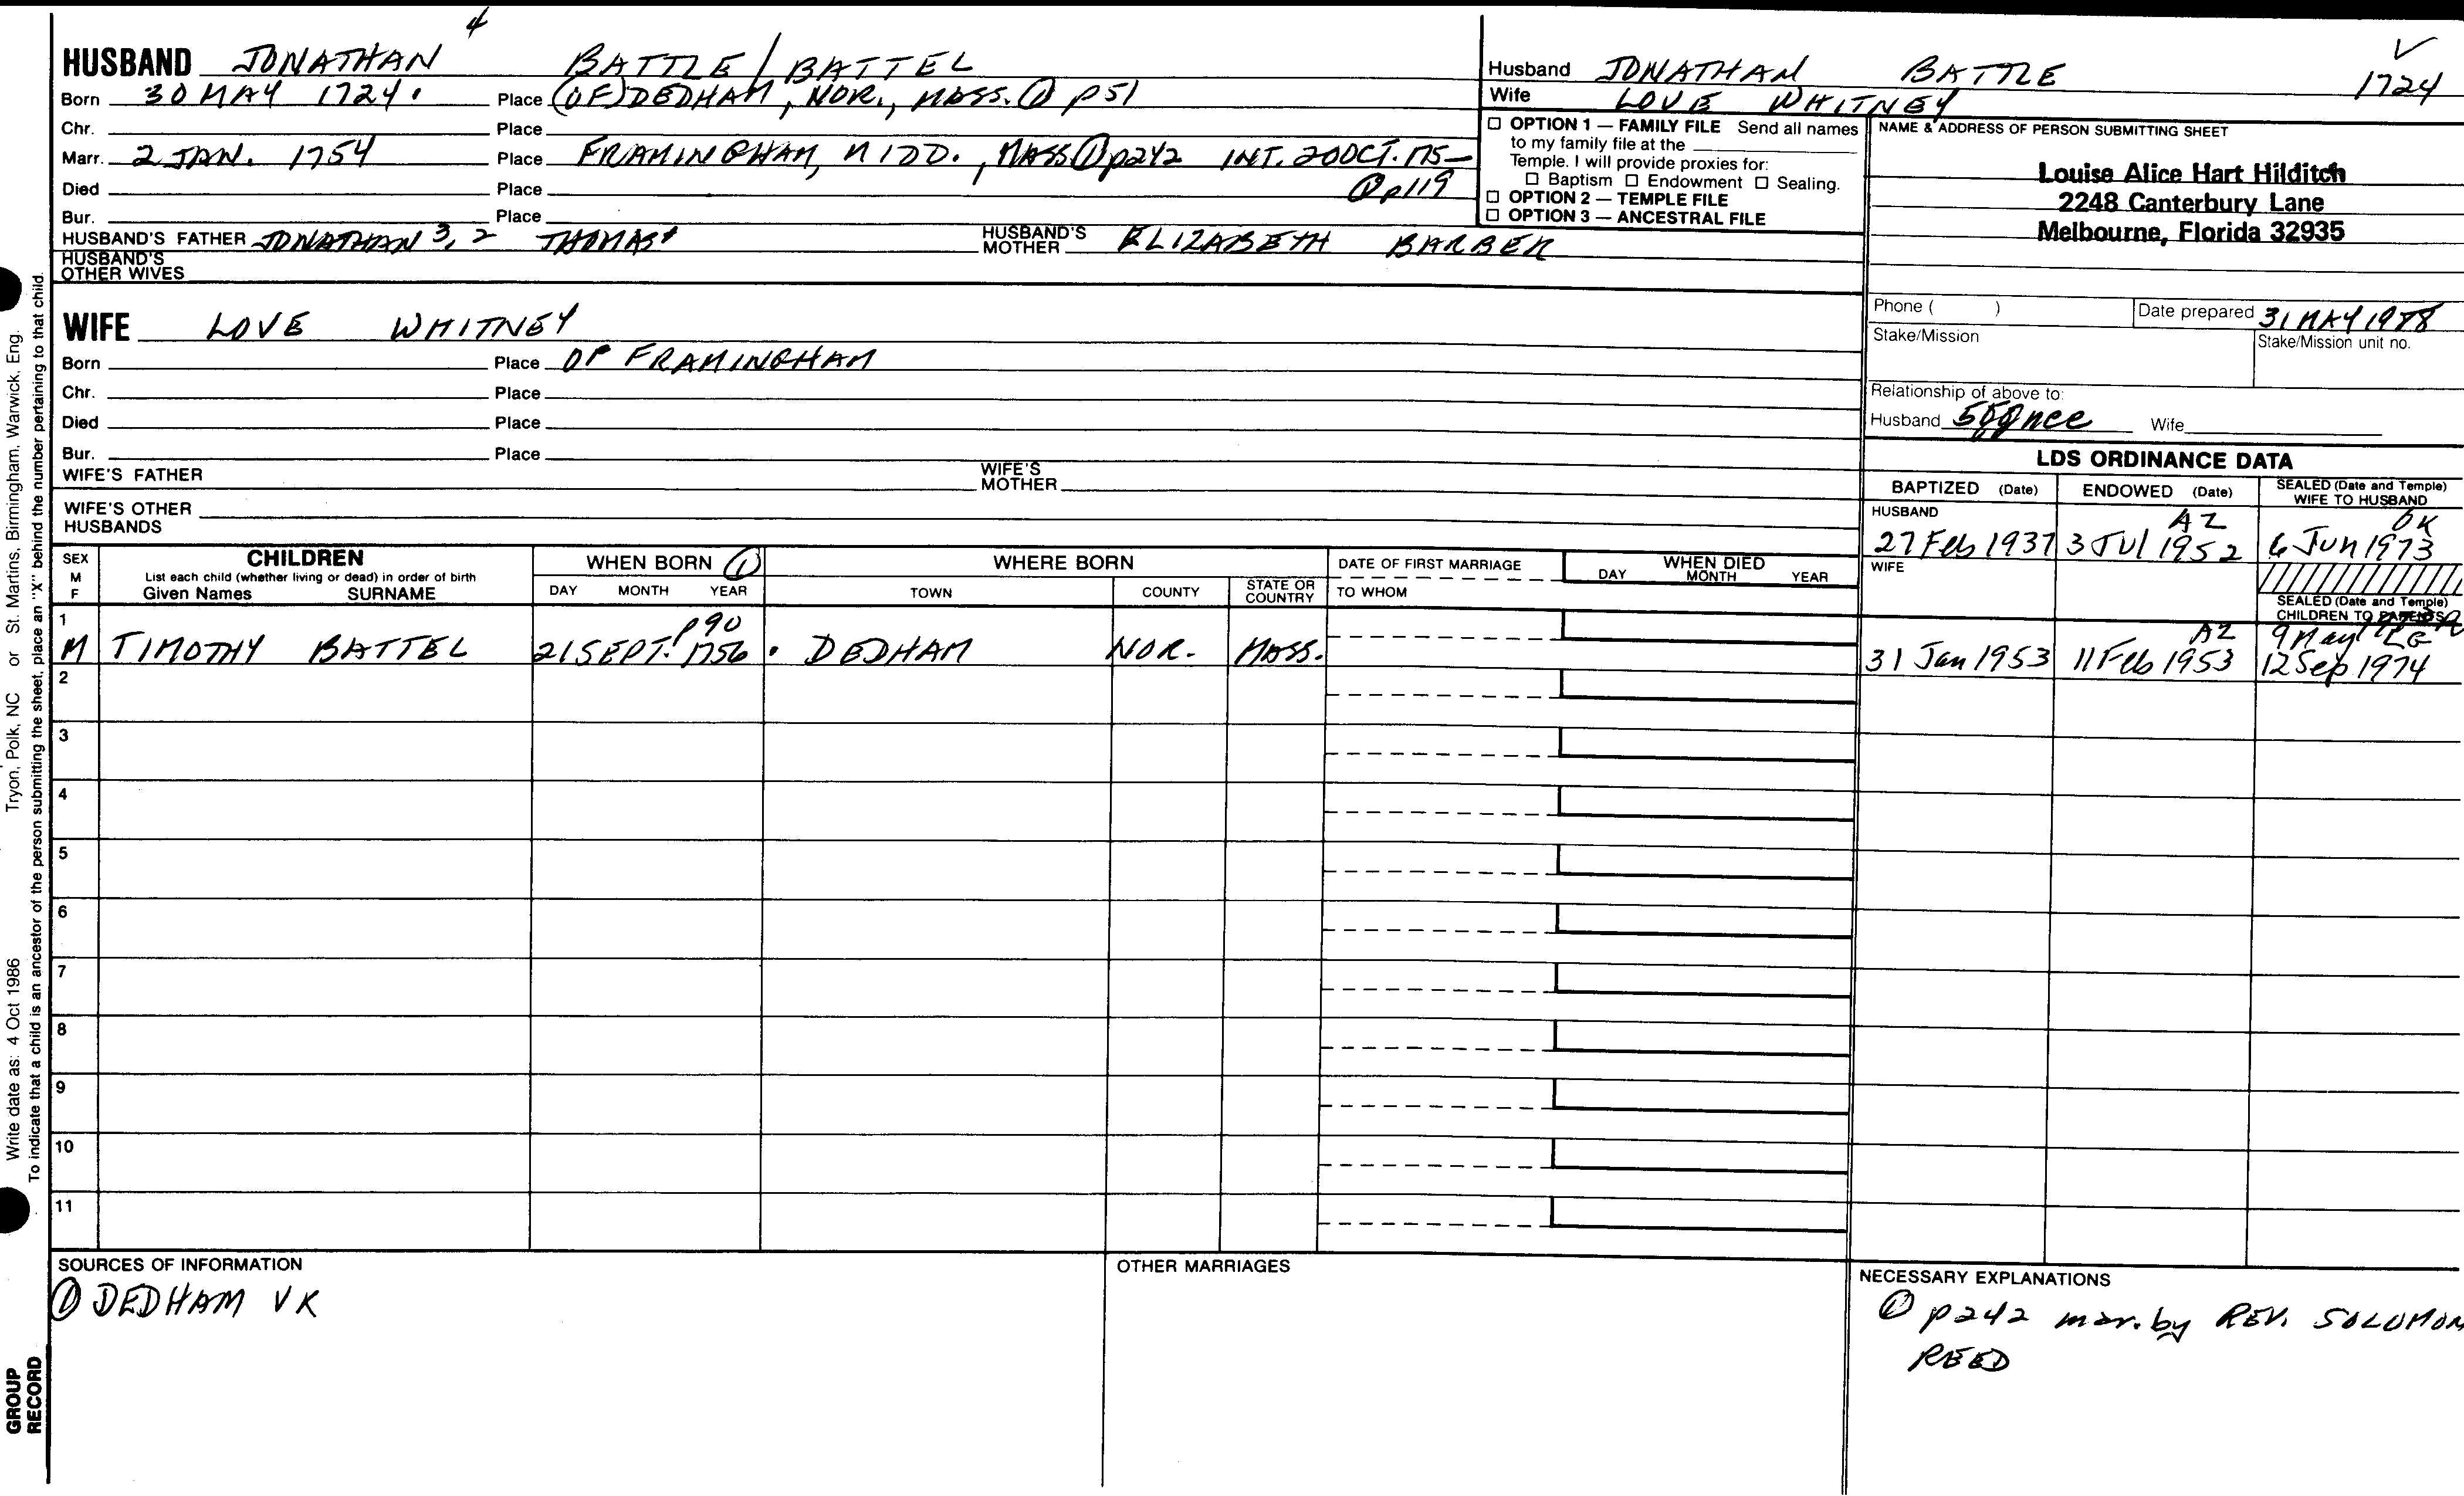 4
HUSBAND JONATHAN BATTLE / BATTEL
Born 30 MAY 1724. Place (OF) DEDHAM, NOR., MASS. ① p51
Chr. Place
Marr. 2 JAN. 1754 Place FRAMINGHAM, MIDD., MASS ① p242 INT. 20 OCT. 175—
Died Place ① p119
Bur. Place
HUSBAND'S FATHER JONATHAN 3, 2 THOMAS 1 HUSBAND'S MOTHER ELIZABETH BARBER
HUSBAND'S OTHER WIVES
WIFE LOVE WHITNEY
Born Place OF FRAMINGHAM
Chr. Place
Died Place
Bur. Place
WIFE'S FATHER WIFE'S MOTHER
WIFE'S OTHER HUSBANDS
Husband JONATHAN BATTLE 1724
Wife LOVE WHITNEY
☐ OPTION 1 — FAMILY FILE Send all names
to my family file at the
Temple. I will provide proxies for:
☐ Baptism ☐ Endowment ☐ Sealing.
☐ OPTION 2 — TEMPLE FILE
☐ OPTION 3 — ANCESTRAL FILE
NAME & ADDRESS OF PERSON SUBMITTING SHEET
Louise Alice Hart Hilditch
2248 Canterbury Lane
Melbourne, Florida 32935
Phone ( ) Date prepared 31 MAY 1978
Stake/Mission Stake/Mission unit no.
Relationship of above to:
Husband Wife
LDS ORDINANCE DATA
BAPTIZED (Date) ENDOWED (Date) SEALED (Date and Temple) WIFE TO HUSBAND
HUSBAND AZ OK
27 Feb 1937 3 Jul 1952 6 Jun 1973
WIFE
SEALED (Date and Temple)
CHILDREN TO PARENTS
SEX M F CHILDREN WHEN BORN ① WHERE BORN DATE OF FIRST MARRIAGE WHEN DIED
List each child (whether living or dead) in order of birth
Given Names SURNAME DAY MONTH YEAR TOWN COUNTY STATE OR COUNTRY TO WHOM DAY MONTH YEAR
1 p90 AZ 9 May
M TIMOTHY BATTEL 21 SEPT. 1756 . DEDHAM NOR. MASS. 31 Jan 1953 11 Feb 1953 12 Sep 1974
2
3
4
5
6
7
8
9
10
11
SOURCES OF INFORMATION
① DEDHAM VR
OTHER MARRIAGES
NECESSARY EXPLANATIONS
① p242 mar. by REV. SOLOMON
REED
Tryon, Polk, NC or St. Martins, Birmingham, Warwick, Eng.
Write date as: 4 Oct 1986
To indicate that a child is an ancestor of the person submitting the sheet, place an "X" behind the number pertaining to that child.
GROUP
RECORD